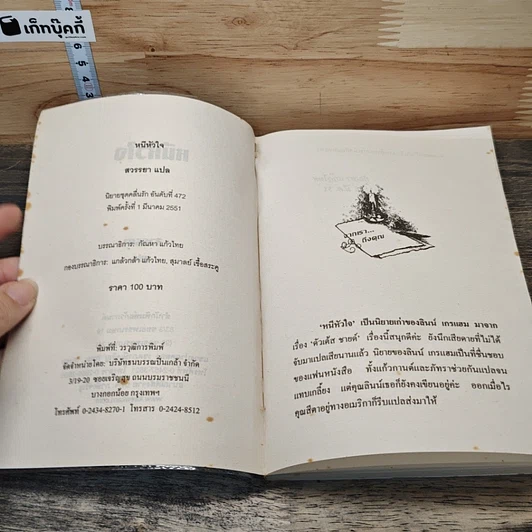 เก็ทบุ๊คกี้
หนีหัวใจ
สวรรยา แปล
นิยายชุดคลื่นรัก อันดับที่ 472
พิมพ์ครั้งที่ 1 มีนาคม 2551
บรรณาธิการ: กัณหา แก้วไทย
กองบรรณาธิการ: แกล้วกล้า แก้วไทย, สุมาลย์ เชื้อสระคู
ราคา 100 บาท
พิมพ์ที่: วรวุฒิการพิมพ์
จัดจำหน่ายโดย: บริษัทธนบรรณปิ่นเกล้า จำกัด
3/19-20 ซอยเจริญสุข ถนนบรมราชชนนี
บางกอกน้อย กรุงเทพฯ
โทรศัพท์ 0-2434-8270-1 โทรสาร 0-2424-8512
จากเรา...
ถึงคุณ
'หนีหัวใจ' เป็นนิยายเก่าของลินน์ เกรแฮม มาจาก
เรื่อง 'ดัวเต้ส ชายด์' เรื่องนี้สนุกดีค่ะ ยังนึกเสียดายที่ไม่ได้
จับมาแปลเสียนานแล้ว นิยายของลินน์ เกรแฮมเป็นที่ชื่นชอบ
ของแฟนหนังสือ ทั้งแก้วกานต์และภัทราช่วยกันแปลจน
แทบเกลี้ยง แต่คุณลินน์เธอก็ยังคงเขียนอยู่ค่ะ ออกเมื่อไร
คุณสีดาอยู่ทางอเมริกาก็รีบแปลส่งมาให้